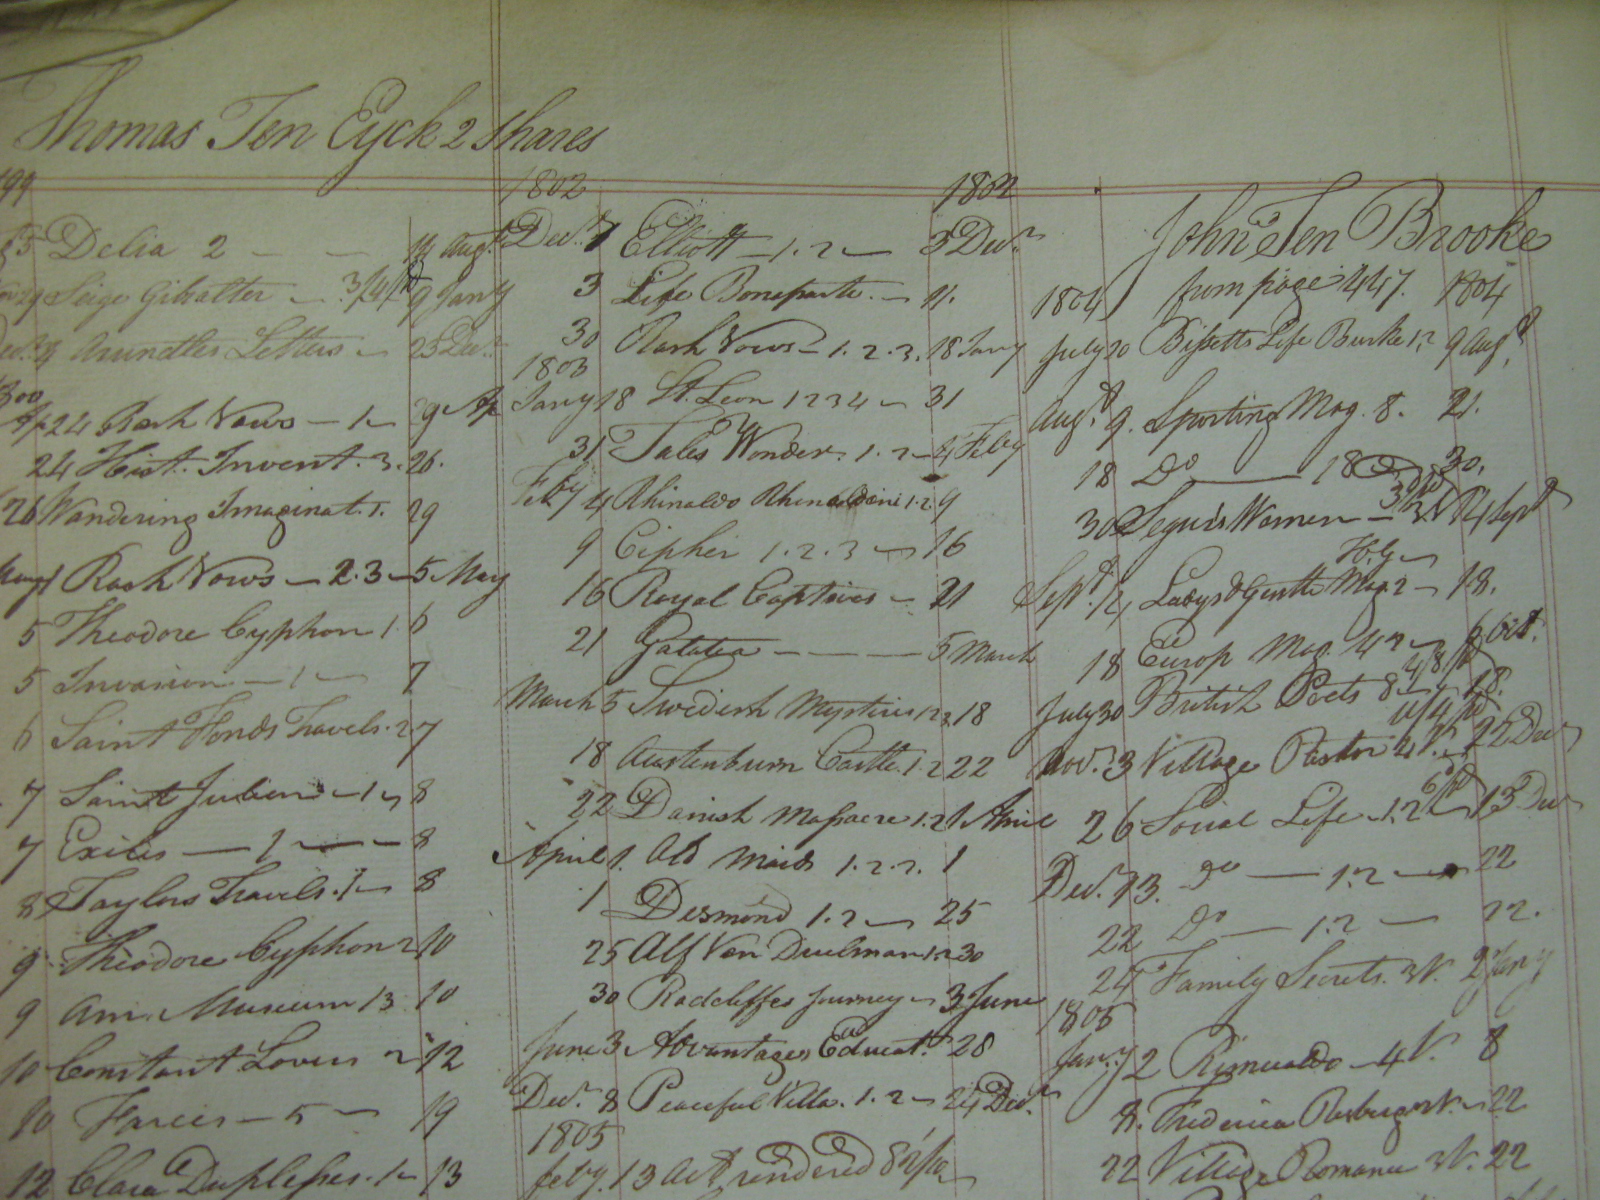 Thomas Ten Eyck 2 shares
Delia 2 — — 11 Augt
Seige Gibralter — 3/4/ 9 Jany
Arundles Letters — 25 Decr
24 Rash Vows — 1 — 29 Ap
24 Hist. Invent. 3. 26.
26 Wandering Imaginat. 1. 29
Rash Vows — 2.3 — 5 May
5 Theodore Cyphon 1. 6
5 Invasion — 1 — 7
6 Saint Fonds Travels. 2 7
7 Saint Julien — 1 — 8
7 Exiles — 1 — — 8
8 Taylors Travels. 1 — 8
9 Theodore Cyphon 2 10
9 Am. Museum 13 10
10 Constant Lover 2 12
10 Farces — 5 — 19
12 Clara Duplessis. 1 — 13
1802 1802
Decr. 1 Elliott — 1.2 — 3 Decr
3 Life Bonaparte. — 11.
30 Rash Vows — 1.2.3. 18 Jany
1803
Jany 18 St. Leon 1 2 3 4 — 31
31 Tales Wonder. 1.2 — 4 Feby
Feby 4 Rhinaldo Rhinaldini 1.2 9
9 Cipher 1.2.3 — 16
16 Royal Captives — 21
21 Galatea — — — 5 March
March 5 Swedish Mysteries 1 2 3 18
18 Austenburn Castle. 1.2 22
22 Danish Massacre 1.2 1 April
April 1. Old Maids 1.2.3. 1
1 Desmond 1.2 — 25
25 Alf Von Duelman 1.2 30
30 Radcliffes Journey — 3 June
June 3 Advantages Educatn 28
Decr. 8 Peaceful Villa. 1.2 — 24 Decr.
1805
Feby. 13 act rendered
John Ten Brooke
1804 from page 447. 1804
July 20 Bissetts Life Burke 1.2 9 Augt.
Augt 9. Sporting Mag. 8. 21.
18 Do — 18 30.
30 Segurs Women — 14 Sept
Sept. 14 Ladys & Gentle Mag. 2 — 18.
18 Europ Mag. 42 — Oct.
July 30 British Poets 8 — 18.
Nov. 3 Village Pastor 22 Decr
26 Social Life — 1.2 13 Decr
Decr. 13. Do — 1.2 — 22
22 Do — 1.2 — 22.
24 Family Secrets. 3 V. 2 Jany
1805
Jany 2 Romualdo — 4 V. 8
8. Frederica 22
22 Village Romance 3 V. 22